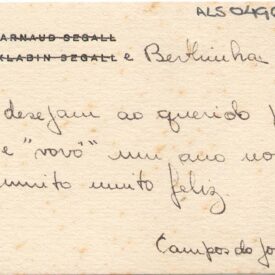 ALS 0490
ARNAUD SEGALL
KLABIN SEGALL e Berthinha
desejam ao querido
e "vovô" um ano no
muito muito feliz.
Campos do Jo